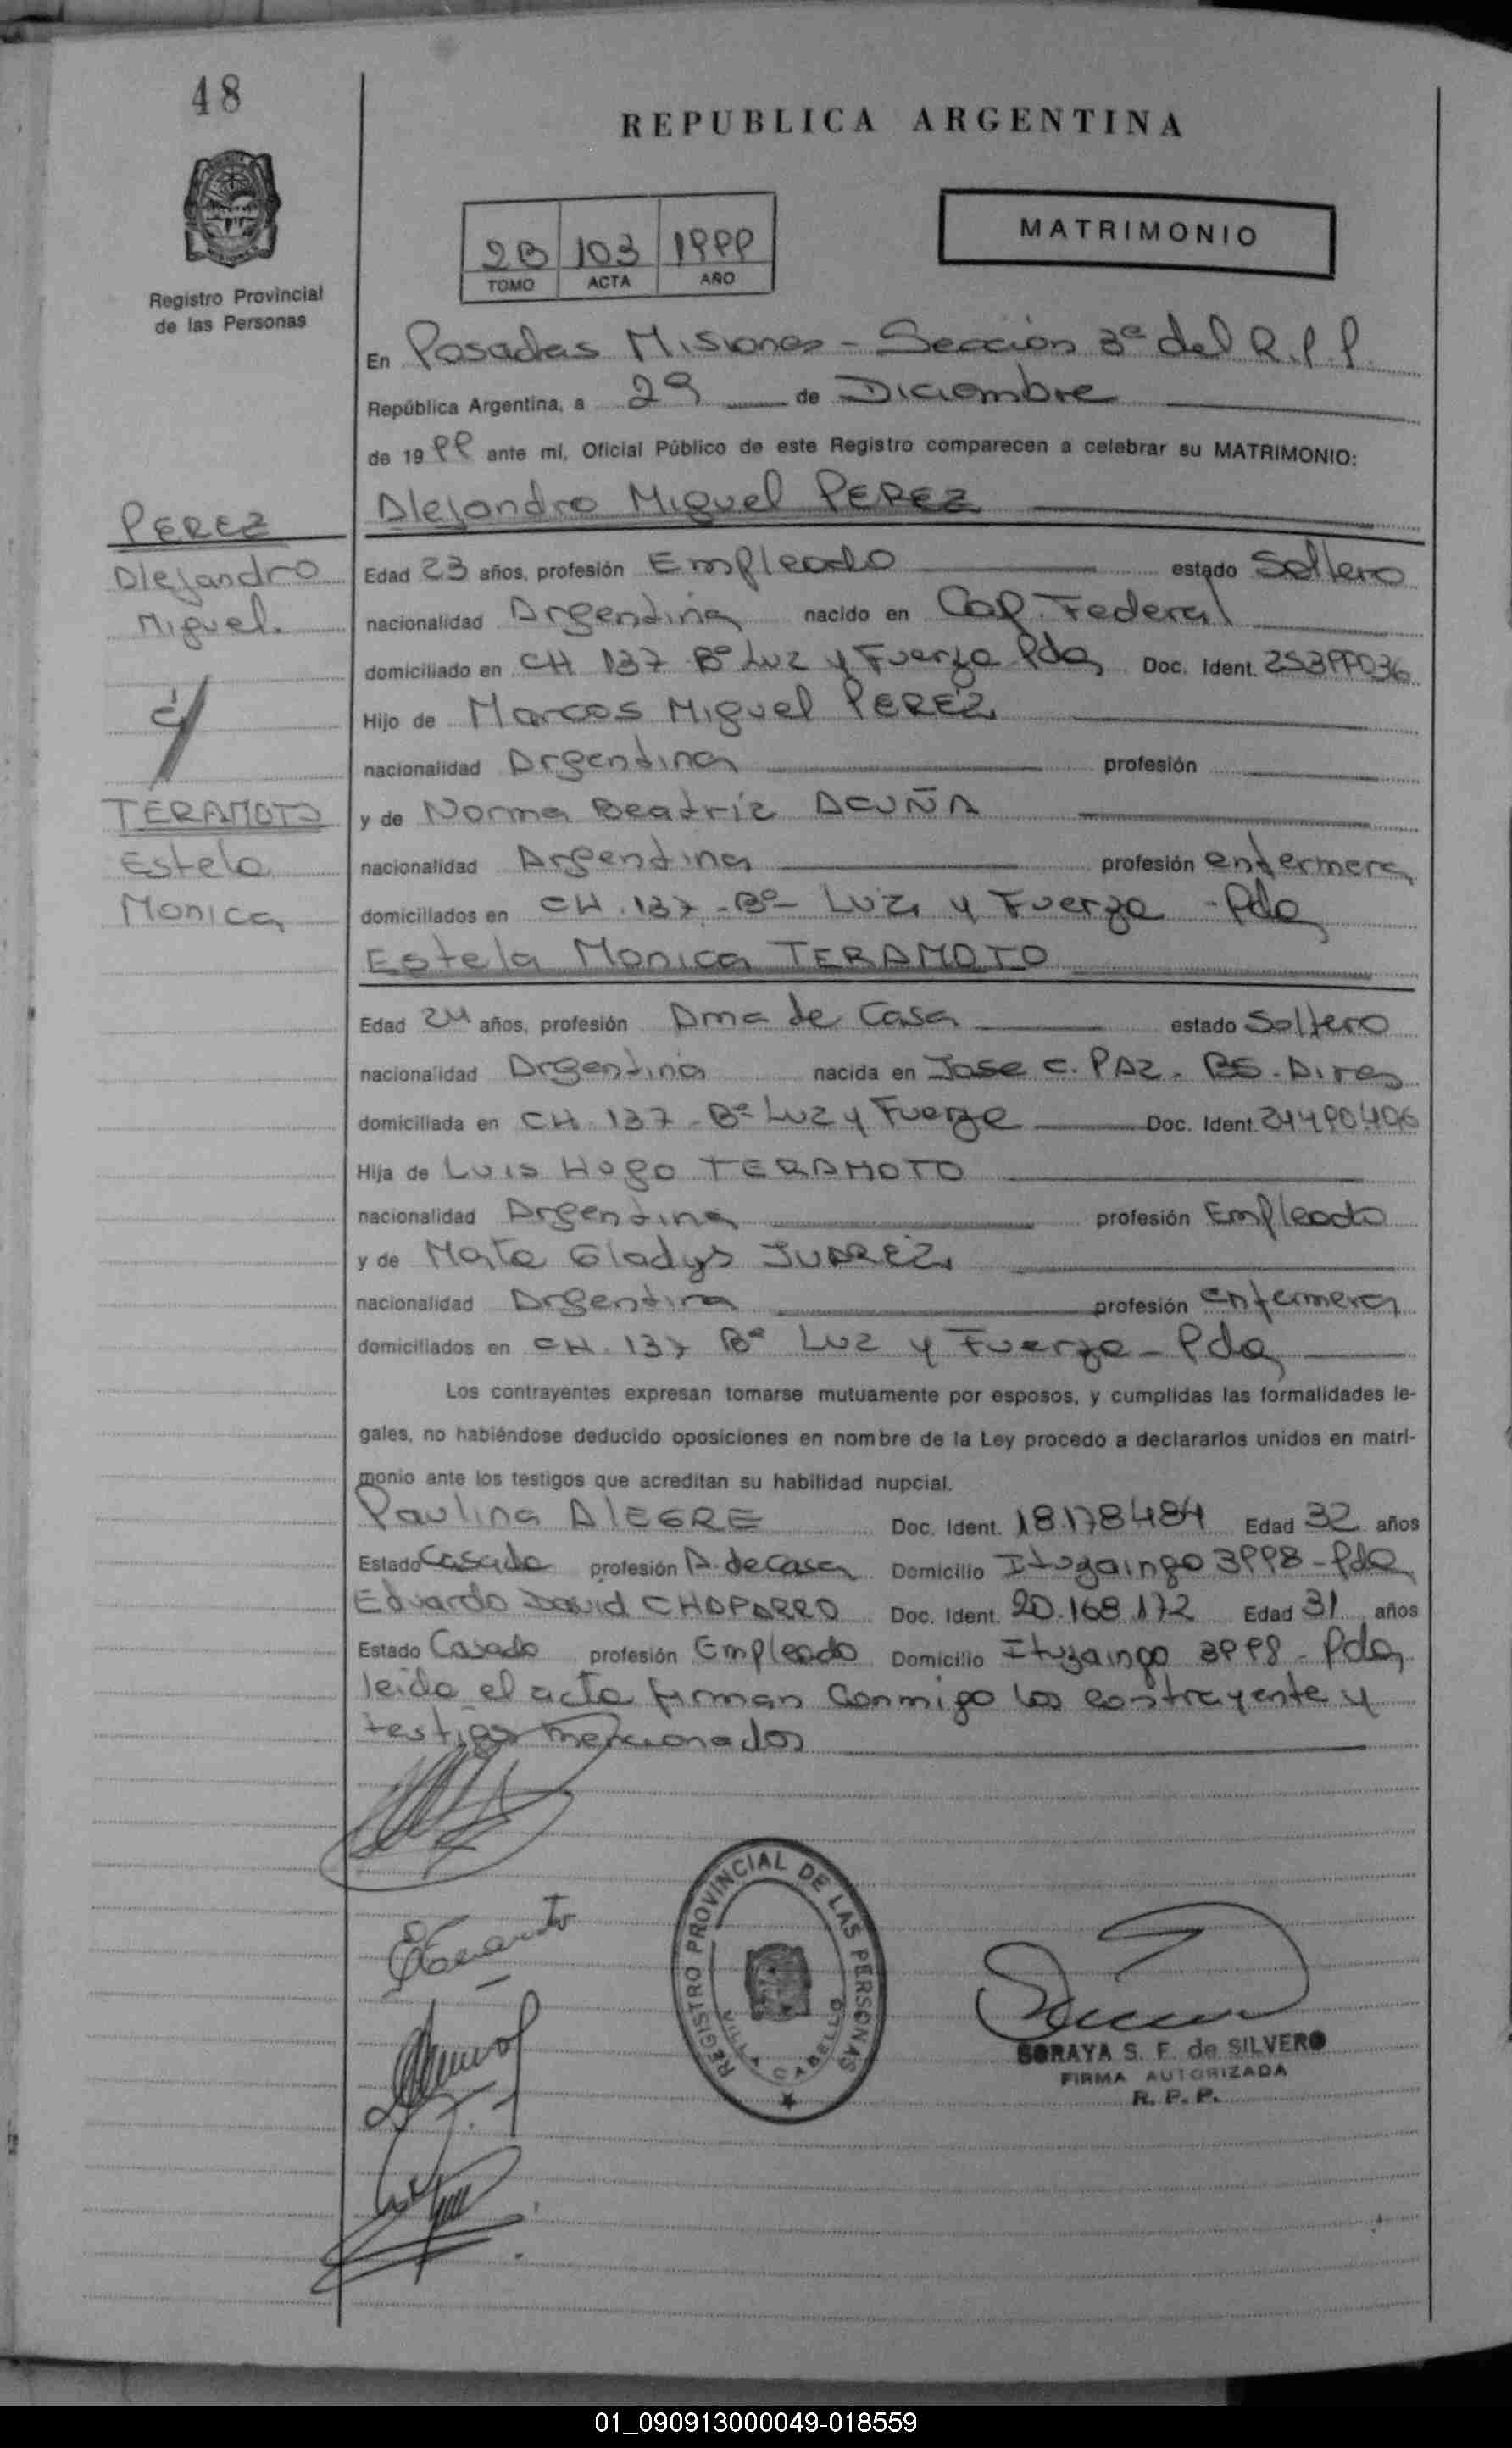 48
REPUBLICA ARGENTINA
2B 103 1999
TOMO ACTA AÑO
MATRIMONIO
Registro Provincial
de las Personas
En Posadas Misiones - Sección 3ª del R.P.P.
República Argentina, a 29 de Diciembre
de 1999 ante mí, Oficial Público de este Registro comparecen a celebrar su MATRIMONIO:
Alejandro Miguel PEREZ
PEREZ
Alejandro
Miguel.
y
TERAMOTO
Estela
Monica
Edad 23 años, profesión Empleado estado Soltero
nacionalidad Argentina nacido en Cap. Federal
domiciliado en CH 137 Bº Luz y Fuerza Pdas Doc. Ident. 25399036
Hijo de Marcos Miguel PEREZ
nacionalidad Argentina profesión
y de Norma Beatriz ACUÑA
nacionalidad Argentina profesión enfermera
domiciliados en CH. 137 - Bº - Luz y Fuerza - Pdas
Estela Monica TERAMOTO
Edad 24 años, profesión Ama de Casa estado Soltero
nacionalidad Argentina nacida en Jose C. PAZ - BS. Aires
domiciliada en CH. 137 - Bº Luz y Fuerza Doc. Ident. 24490406
Hija de Luis Hugo TERAMOTO
nacionalidad Argentina profesión Empleado
y de Gladys JUAREZ
nacionalidad Argentina profesión enfermera
domiciliados en CH. 137 Bº Luz y Fuerza - Pdas
Los contrayentes expresan tomarse mutuamente por esposos, y cumplidas las formalidades le-
gales, no habiéndose deducido oposiciones en nombre de la Ley procedo a declararlos unidos en matri-
monio ante los testigos que acreditan su habilidad nupcial.
Paulina ALEGRE Doc. Ident. 18.178484 Edad 32 años
Estado Casada profesión A. de casa Domicilio Ituzaingo 3998 - Pdas
Eduardo David CHAPARRO Doc. Ident. 20.168.172 Edad 31 años
Estado Casado profesión Empleado Domicilio Ituzaingo 3998 - Pdas
leida el acta firman conmigo los contrayente y
testigos mencionados
REGISTRO PROVINCIAL DE LAS PERSONAS
VILLA CABELLO
SORAYA S. F. de SILVERO
FIRMA AUTORIZADA
R. P. P.
01_090913000049-018559